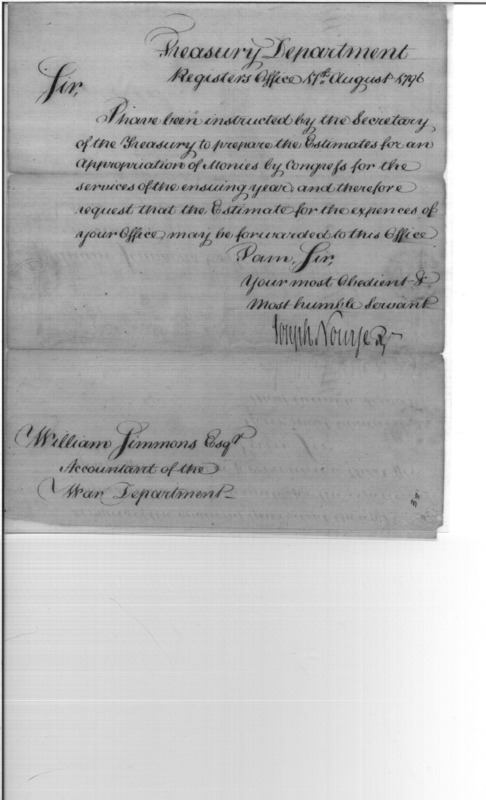 Treasury Department
Registers Office 17th August 1796
Sir,
I have been instructed by the Secretary
of the Treasury to prepare the Estimates for an
Appropriation of Monies by Congress for the
services of the ensuing year and therefore
request that the Estimate for the expences of
your Office may be forwarded to this Office
I am, Sir,
Your most Obedient &
Most humble Servant
Joseph Nourse
William Simmons Esqr
Accountant of the
War Department